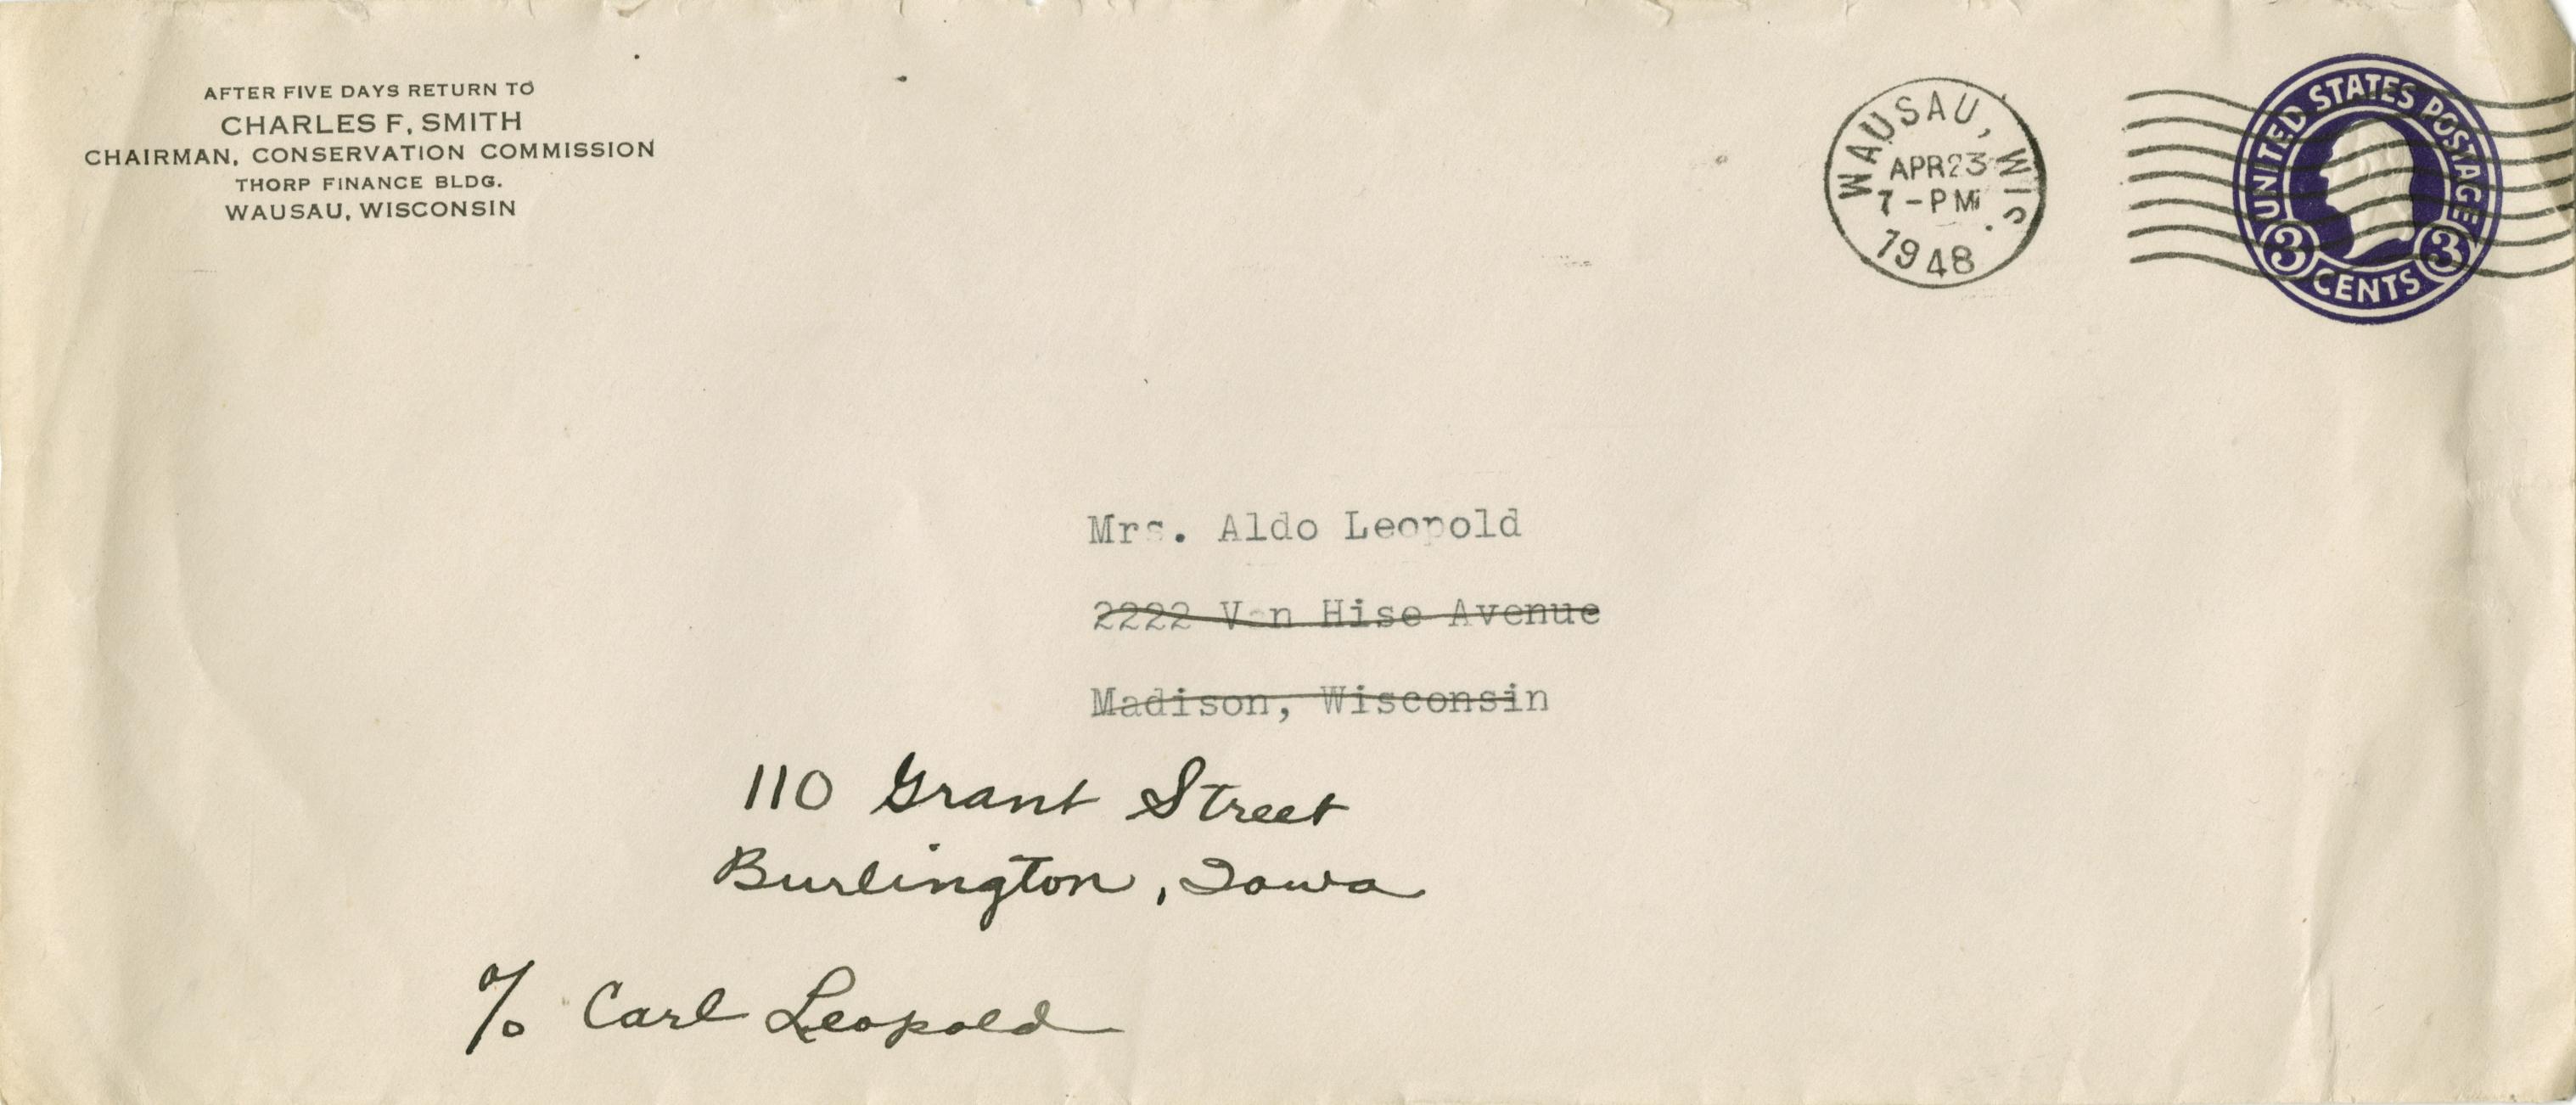 AFTER FIVE DAYS RETURN TO
CHARLES F. SMITH
CHAIRMAN, CONSERVATION COMMISSION
THORP FINANCE BLDG.
WAUSAU, WISCONSIN
WAUSAU, WIS.
APR 23
7-PM
1948
UNITED STATES POSTAGE
3 CENTS 3
Mrs. Aldo Leopold
2222 Van Hise Avenue
Madison, Wisconsin
110 Grant Street
Burlington, Iowa
c/o Carl Leopold